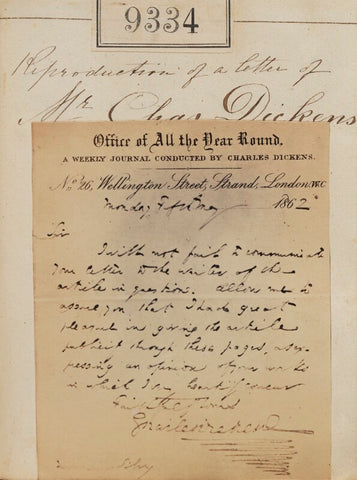 9334
Reproduction of a letter of
Mr Chas Dickens
Office of All the Year Round.
A WEEKLY JOURNAL CONDUCTED BY CHARLES DICKENS.
No 26, Wellington Street, Strand, London. W.C
Monday 1862
Sir
I will not fail to communicate
your letter to the writer of the
article in question. Allow me to
assure you that I had great
pleasure in giving the article
publicity through these pages, as ex-
pressing an opinion of your
in which I
Faithfully Yours
Charles Dickens